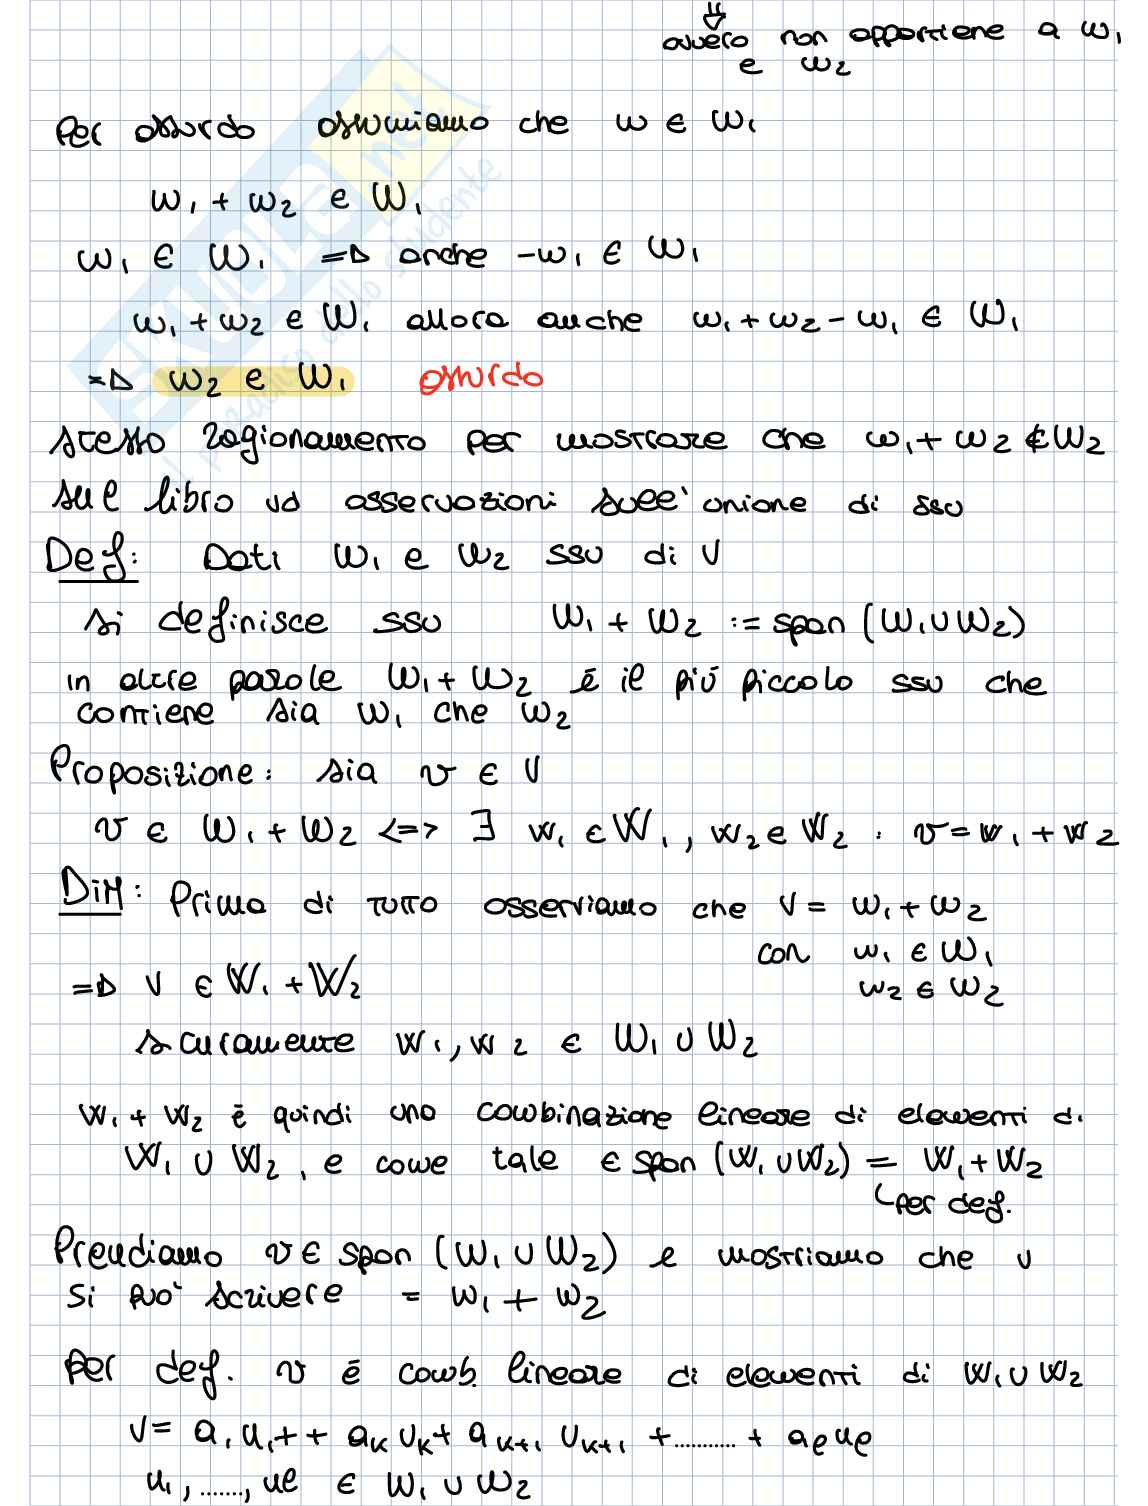 ⇓
ovvero non appartiene a W₁
e W₂
Per assurdo assumiamo che w ∈ W₁
w₁ + w₂ ∈ W₁
w₁ ∈ W₁ => anche -w₁ ∈ W₁
w₁ + w₂ ∈ W₁ allora anche w₁ + w₂ - w₁ ∈ W₁
=> w₂ ∈ W₁ assurdo
stesso ragionamento per mostrare che w₁ + w₂ ∉ W₂
sul libro vd osservazioni sull'unione di ssv
Def: Dati W₁ e W₂ ssv di V
si definisce ssv W₁ + W₂ := span (W₁ ∪ W₂)
in altre parole W₁ + W₂ é il piú piccolo ssv che
contiene sia W₁ che W₂
Proposizione: sia v ∈ V
v ∈ W₁ + W₂ <=> ∃ w₁ ∈ W₁, w₂ ∈ W₂ : v = w₁ + w₂
DiM: Prima di tutto osserviamo che v = w₁ + w₂
con w₁ ∈ W₁
w₂ ∈ W₂
=> v ∈ W₁ + W₂
sicuramente w₁, w₂ ∈ W₁ ∪ W₂
w₁ + w₂ é quindi una combinazione lineare di elementi di
W₁ ∪ W₂, e come tale ∈ span (W₁ ∪ W₂) = W₁ + W₂
per def.
Prendiamo v ∈ span (W₁ ∪ W₂) e mostriamo che v
si può scrivere = w₁ + w₂
Per def. v é comb. lineare di elementi di W₁ ∪ W₂
v = a₁u₁ + + aₖuₖ + aₖ₊₁ uₖ₊₁ + ........... + aₗuₗ
u₁, ......., uₗ ∈ W₁ ∪ W₂
SKUOLA.net
il paradiso dello studente